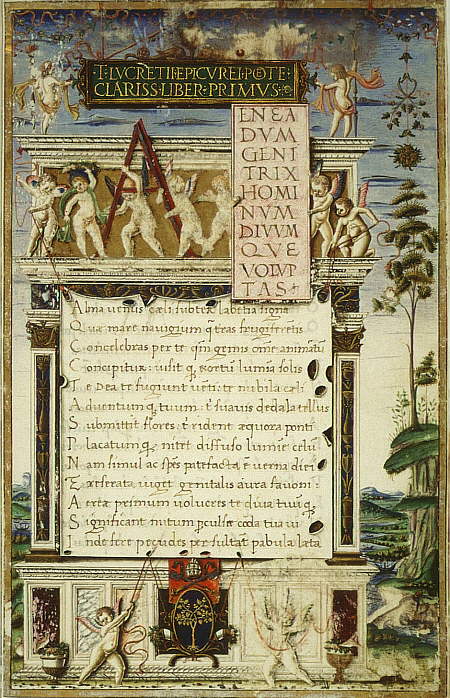 T·LVCRETII·EPICVREI·POTE
CLARISS·LIBER·PRIMVS
A
ENEA
DVM
GENI
TRIX
HOMI
NVM
DIVVM
QVE
VOLVP
TAS
Alma venus cæli subter labētia signa
Quæ mare navigerum q̄ terras frugiferētis
Concelebras per te qm̄ genus om̄e animātū
Concipitur: visitq; exortū lumīa solis
Te Dea te fugiunt vēti: te nubila cæli
Adventumq; tuum: t' suavis dedala tellus
Submittit flores: t' rident æquora ponti
Placatumq; nitet diffuso lumīe celū
Nam simul ac spēs patefacta ē verna diei
Et reserata viget genitalis aura favoni:
Aeriæ primum volucres te diva tuūq;
Significant initum pculsæ corda tua vi
Inde feræ pecudes persultāt pabula læta